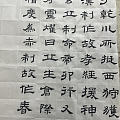 子乾川所挺西狩獲
漢制作故孝經援神
曰玄丘制命帝卯行又
靈燿曰丘生倉際
稽度為赤制故作春